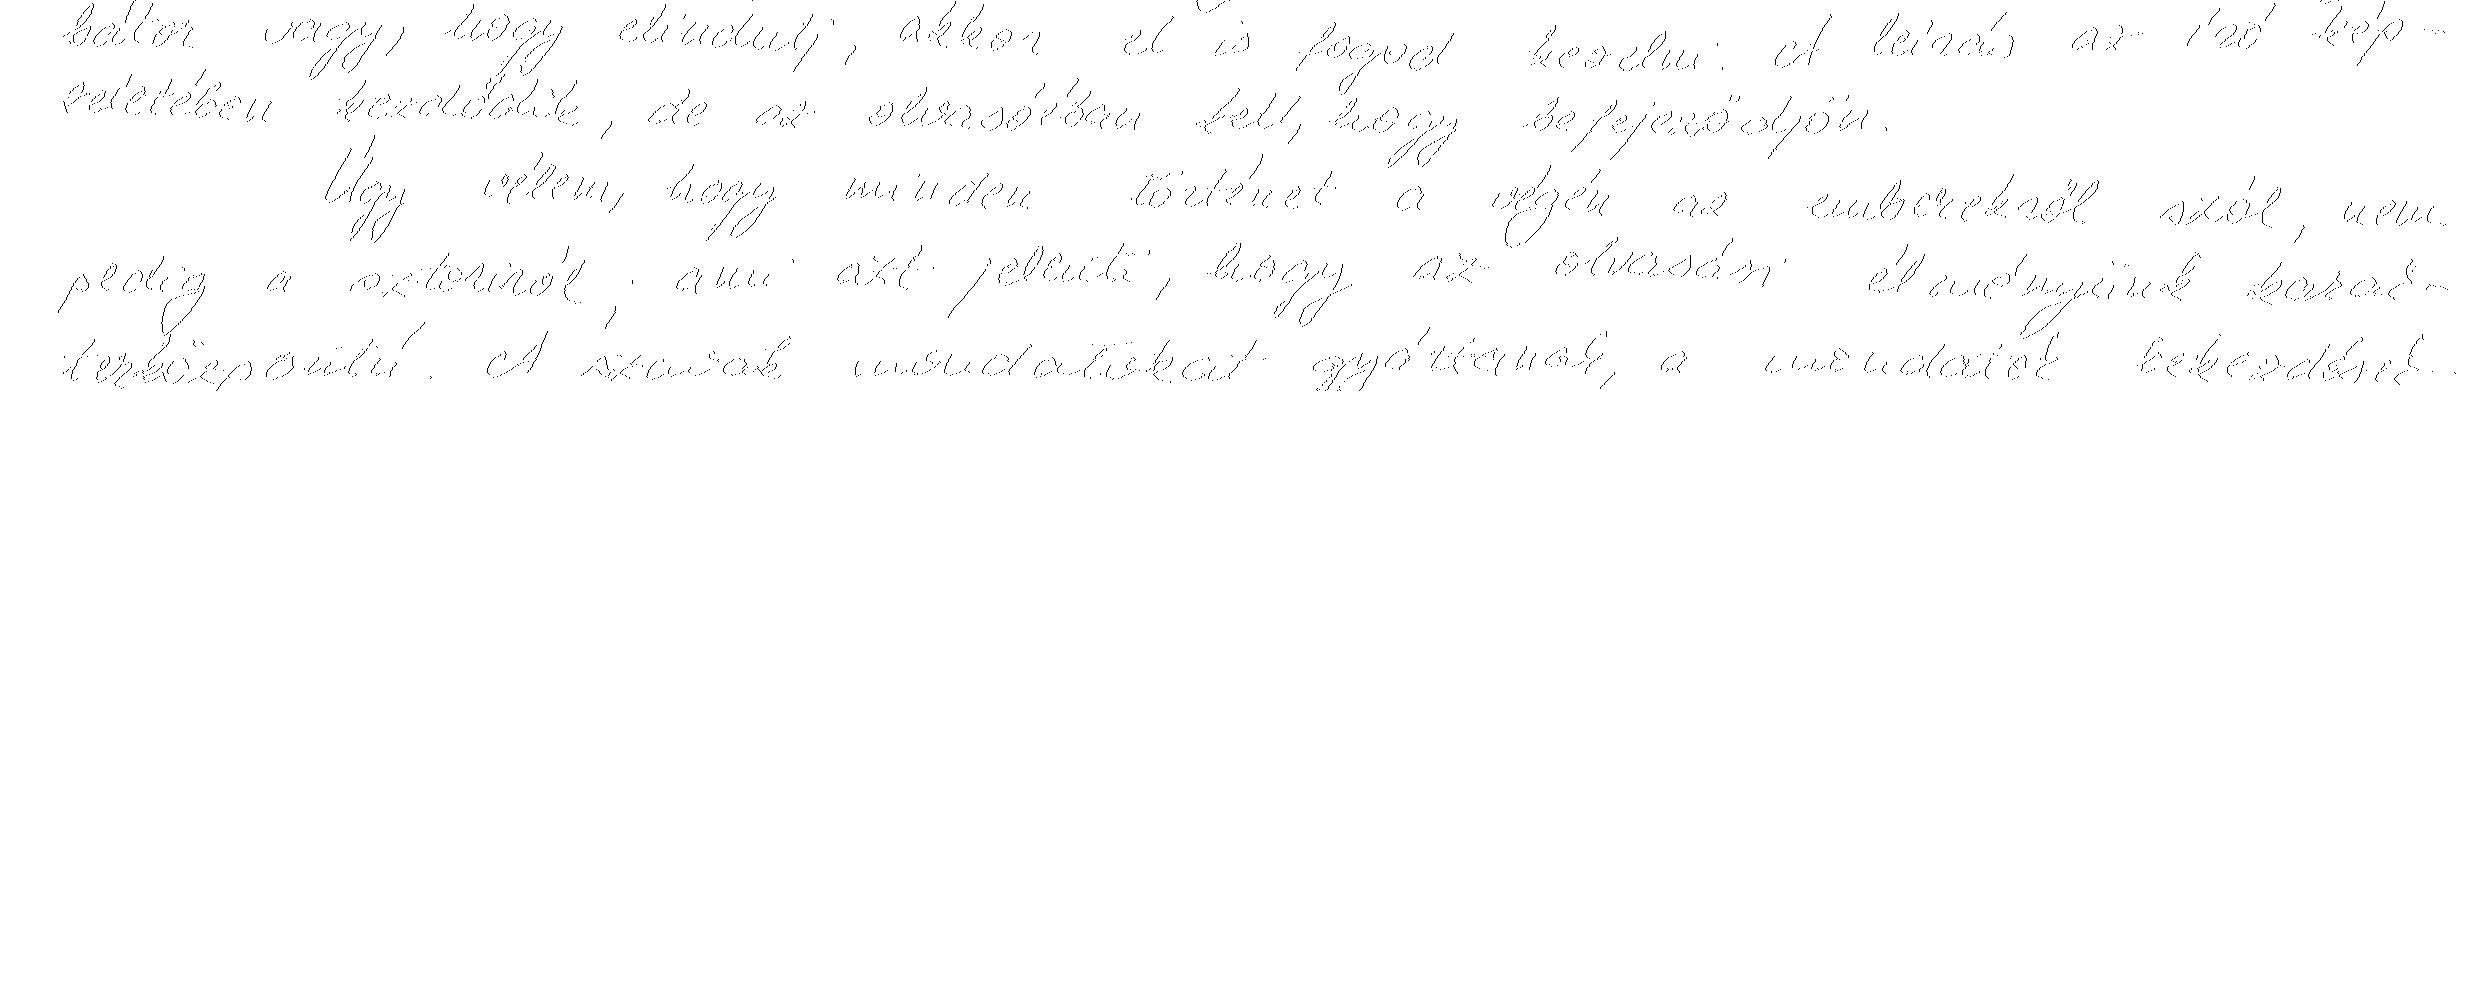 bátor vagy, hogy elindulj, akkor el is fogod kezdeni. A leírás az író kép-
zeletében kezdődik, de az olvasóéban kell, hogy befejeződjön.
Úgy vélem, hogy minden történet a végén az emberekről szól, nem
pedig a sztoriról; ami azt jelenti, hogy az olvasási élményünk karak-
terközpontú. A szavak mondatokat gyártanak, a mondatok bekezdése-